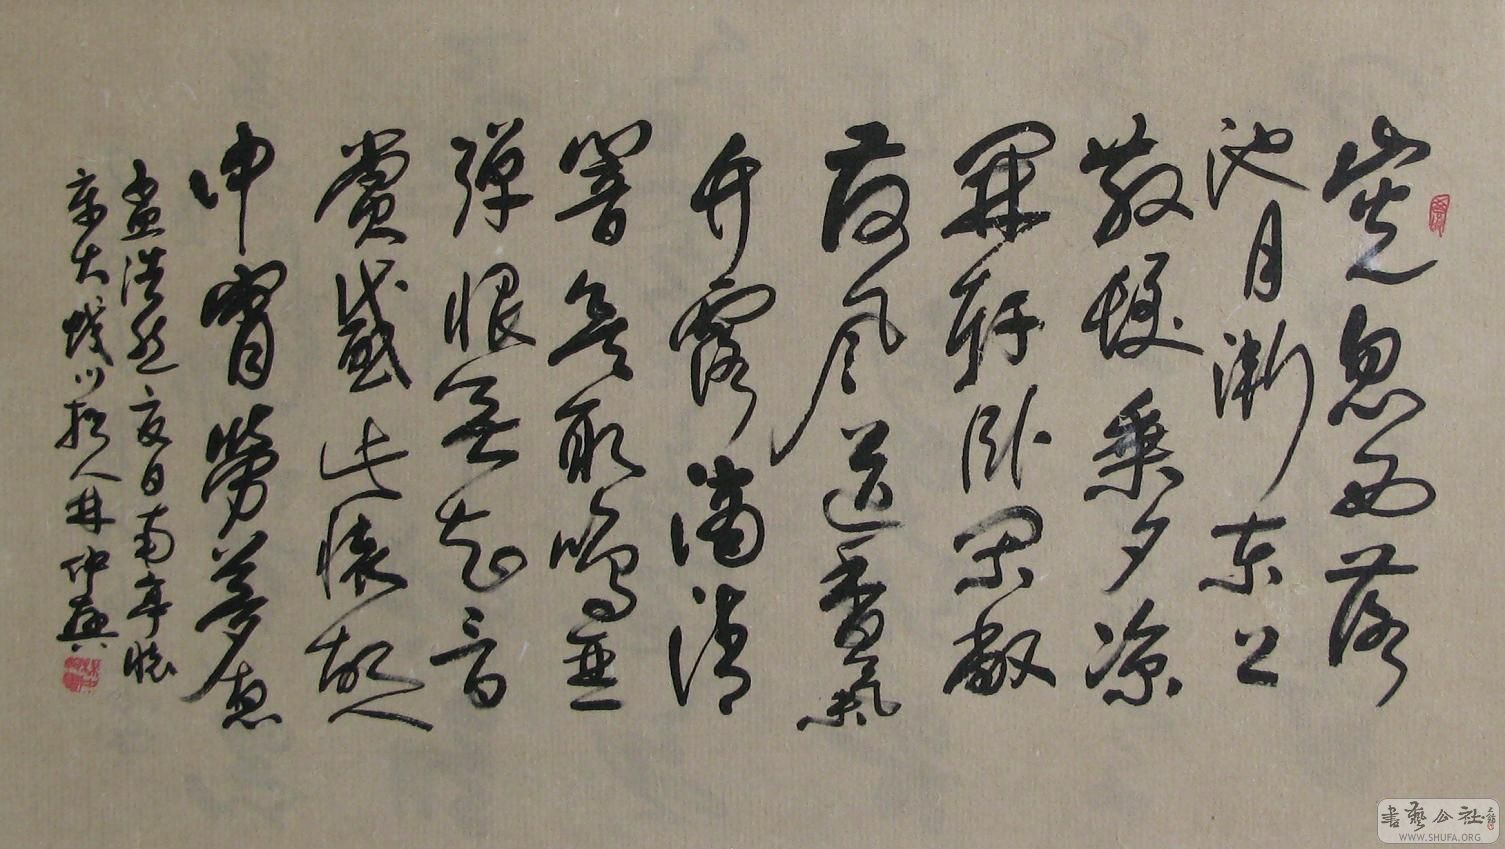 山光忽西落
池月漸東上
散髮乘夕涼
開軒卧閑敞
荷風送香氣
竹露滴清
響欲取鳴琴
彈恨無知音
賞感此懷故人
中宵勞夢想
孟浩然夏日南亭懷
辛大 人林仲興
書藝公社
WWW.SHUFA.ORG